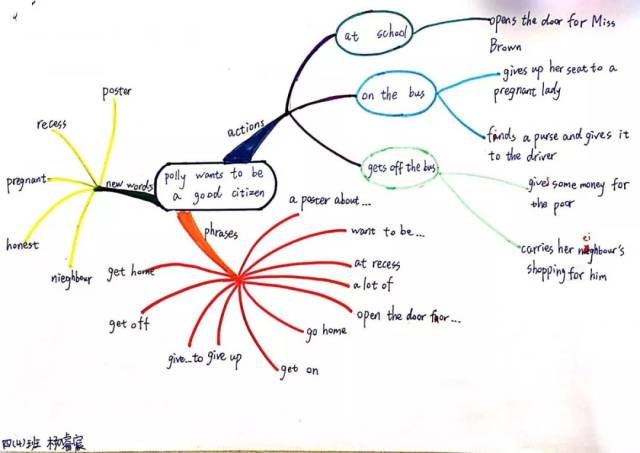 at school
opens the door for Miss
Brown
on the bus
gives up her seat to a
pregnant lady
finds a purse and gives it
to the driver
gets off the bus
gives some money for
the poor
carries her neighbour's
shopping for him
actions
poster
recess
pregnant
honest
nieghbour
new words
polly wants to be
a good citizen
phrases
a poster about...
want to be...
at recess
a lot of
open the door for...
go home
get on
give up
give...to
get off
get home
四(4)班 杨睿宸